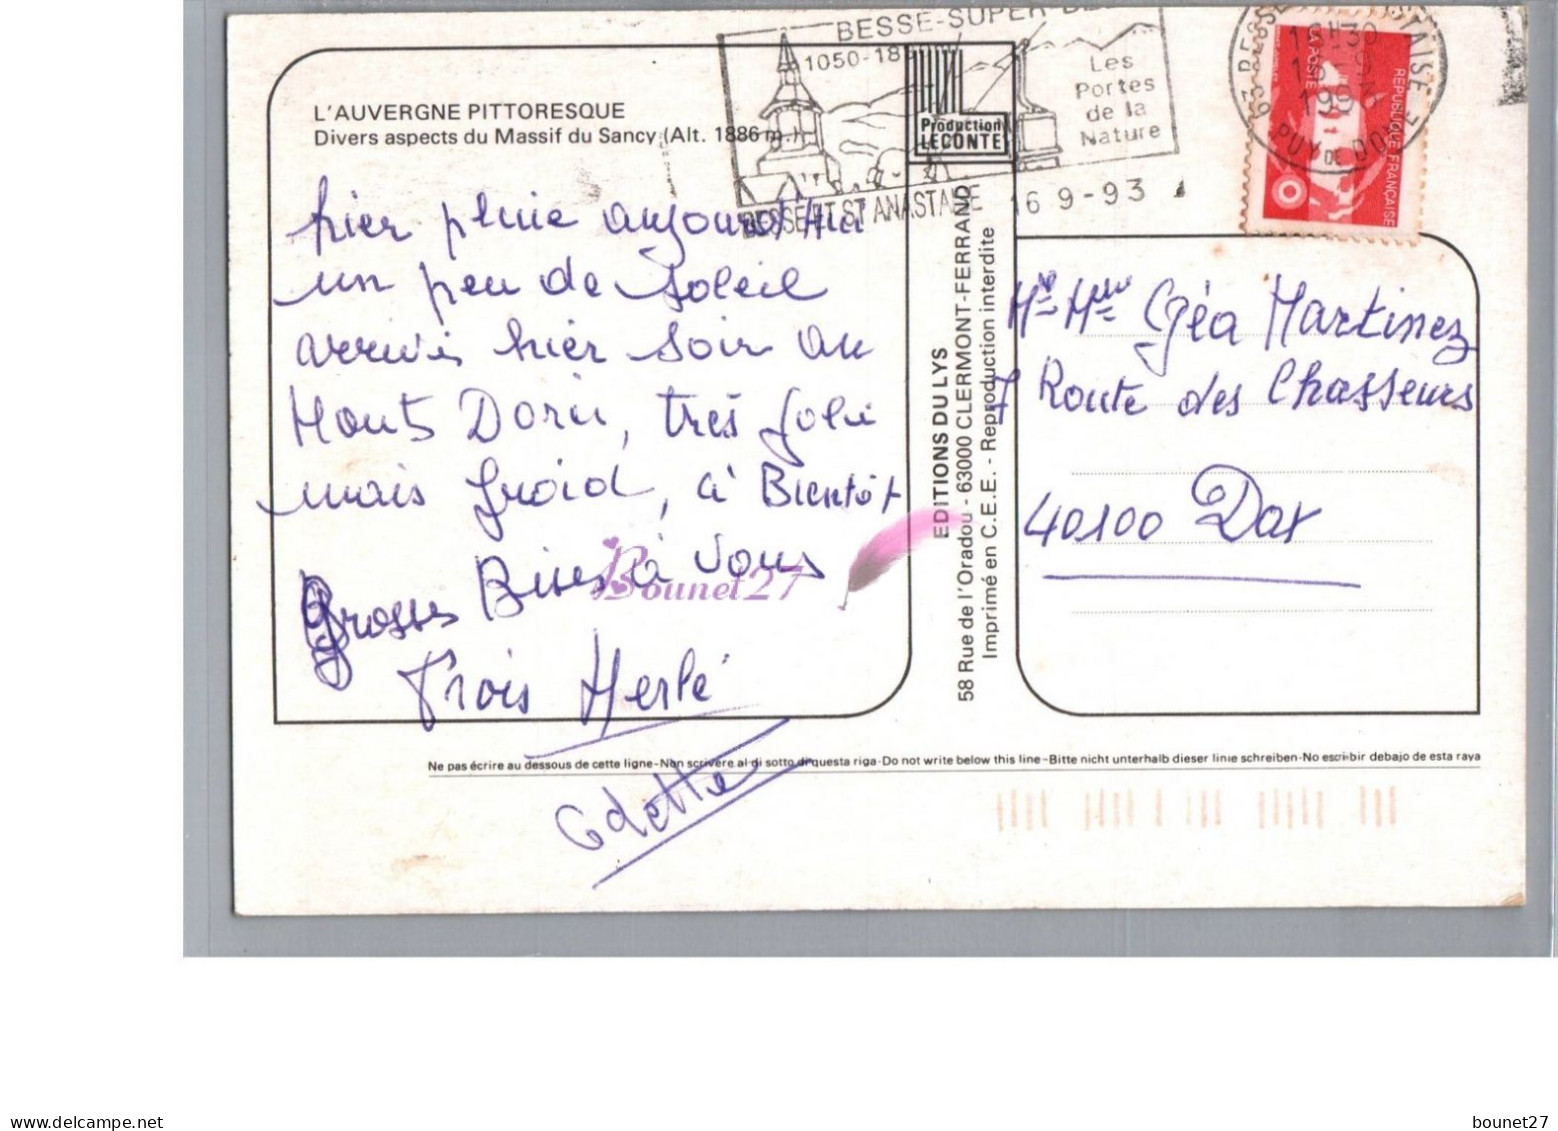 BESSE-SUPER-BE
1050-18
Les
Portes
de la
Nature
BESSE ET ST ANASTAISE
16 9-93
16H30
16-9
1993
PUY DE DOME
REPUBLIQUE FRANÇAISE
LA POSTE
L'AUVERGNE PITTORESQUE
Divers aspects du Massif du Sancy (Alt. 1886 m.)
Production
LECONTE
hier pluie aujourd'hui
un peu de soleil
arrivés hier soir au
Mont Dorée, très jolie
mais froid, à Bientôt
Grosses Bises à vous
Trois Herlé
Odette
EDITIONS DU LYS
58 Rue de l'Oradou - 63000 CLERMONT-FERRAND
Imprimé en C.E.E. - Reproduction interdite
Mr Mme Géa Martinez
7 Route des Chasseurs
40100 Dax
Ne pas écrire au dessous de cette ligne-Non scrivere al di sotto di questa riga-Do not write below this line-Bitte nicht unterhalb dieser linie schreiben-No escribir debajo de esta raya
Bounet27
delcampe.net
bounet27